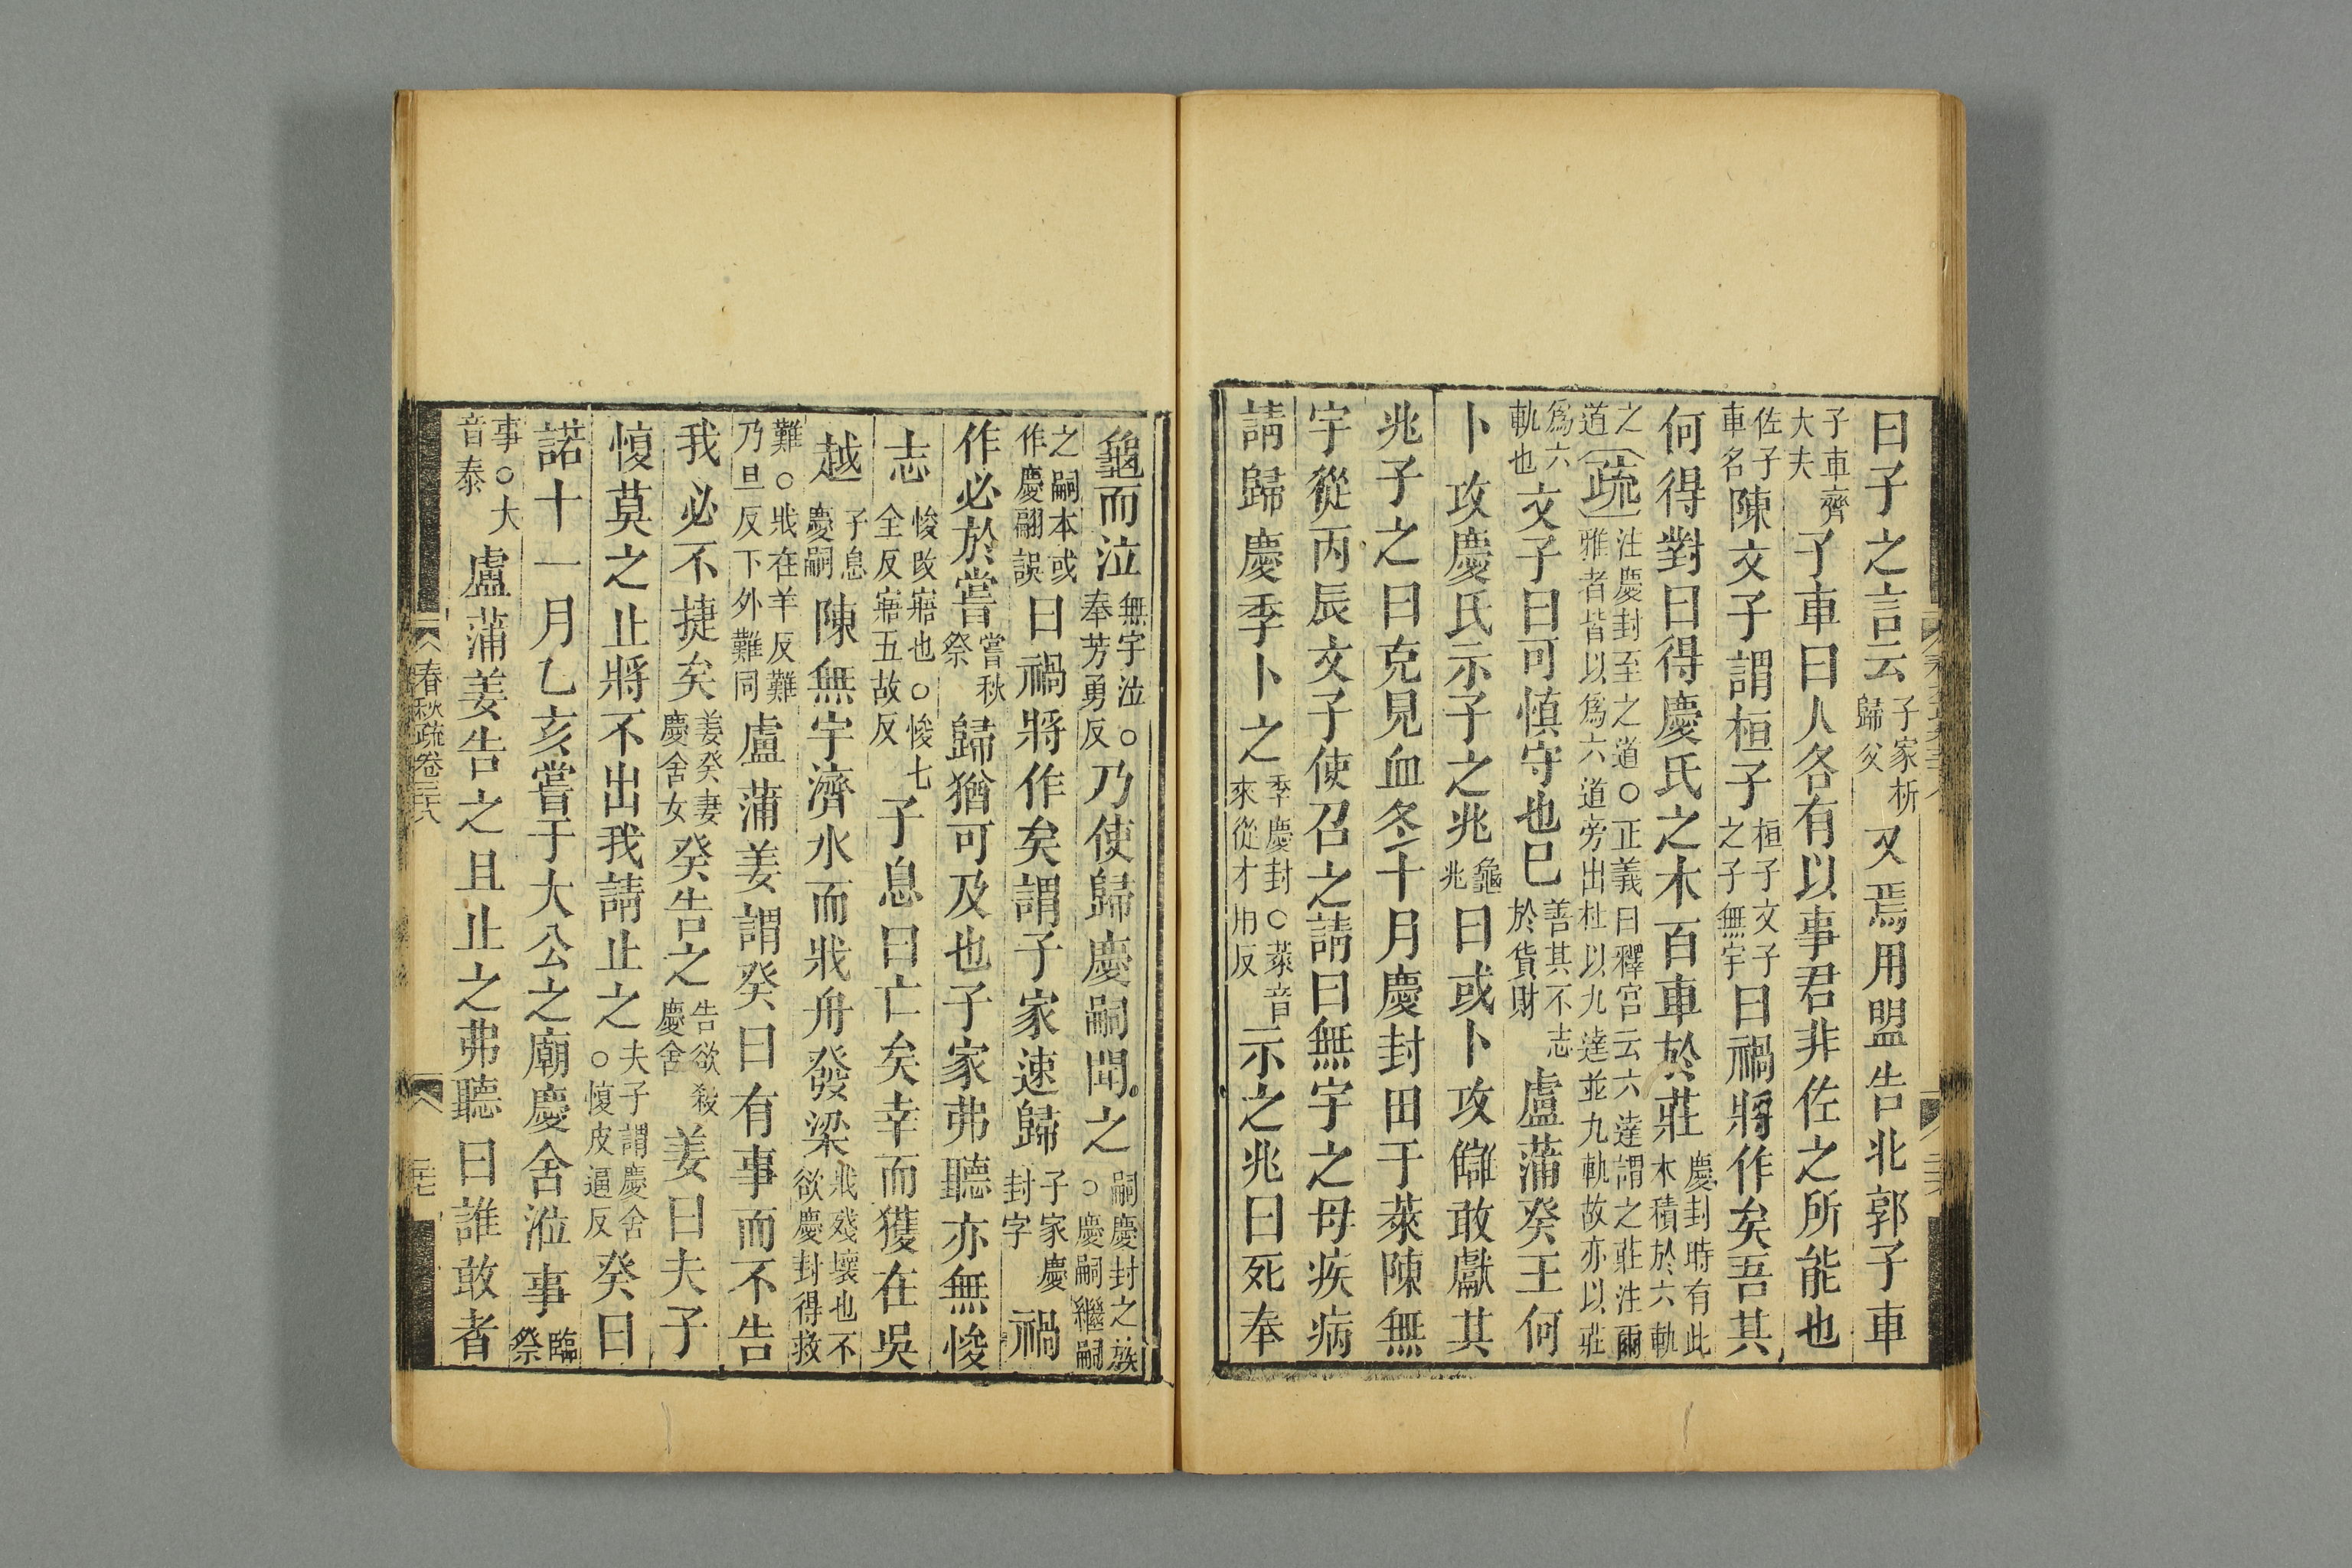 曰子之言云子家析歸父又焉用盟告北郭子車
子車齊大夫子車曰人各有以事君非佐之所能也
佐子車名陳文子謂桓子桓子文子之子無宇曰禍將作矣吾其
何得對曰得慶氏之木百車於莊慶封時有此木積於六軌
之道疏注慶封至之道○正義曰釋宮云六達謂之莊注爾雅者皆以爲六道旁出杜以九達並九軌故亦以莊
爲六軌也文子曰可慎守也已善其不志於貨財盧蒲癸王何
卜攻慶氏示子之兆龜兆曰或卜攻讎敢獻其
兆子之曰克見血冬十月慶封田于萊陳無
宇從丙辰文子使召之請曰無宇之母疾病
請歸慶季卜之季慶封○萊音來從才用反示之兆曰死奉
龜而泣無宇泣○奉芳勇反乃使歸慶嗣聞之嗣慶封之族○慶嗣繼嗣
之嗣本或作慶翮誤曰禍將作矣謂子家速歸子家慶封字禍
作必於嘗嘗秋祭歸猶可及也子家弗聽亦無悛
志悛改寤也○悛七全反寤五故反子息曰亡矣幸而獲在吳
越子息慶嗣陳無宇濟水而戕舟發梁戕殘壞也不欲慶封得救
難○戕在羊反難乃旦反下外難同盧蒲姜謂癸曰有事而不告
我必不捷矣姜癸妻慶舍女癸告之告欲殺慶舍姜曰夫子
愎莫之止將不出我請止之夫子謂慶舍○愎皮逼反癸曰
諾十一月乙亥嘗于大公之廟慶舍涖事臨祭
事○大音泰盧蒲姜告之且止之弗聽曰誰敢者
春秋疏卷三十八
二十七